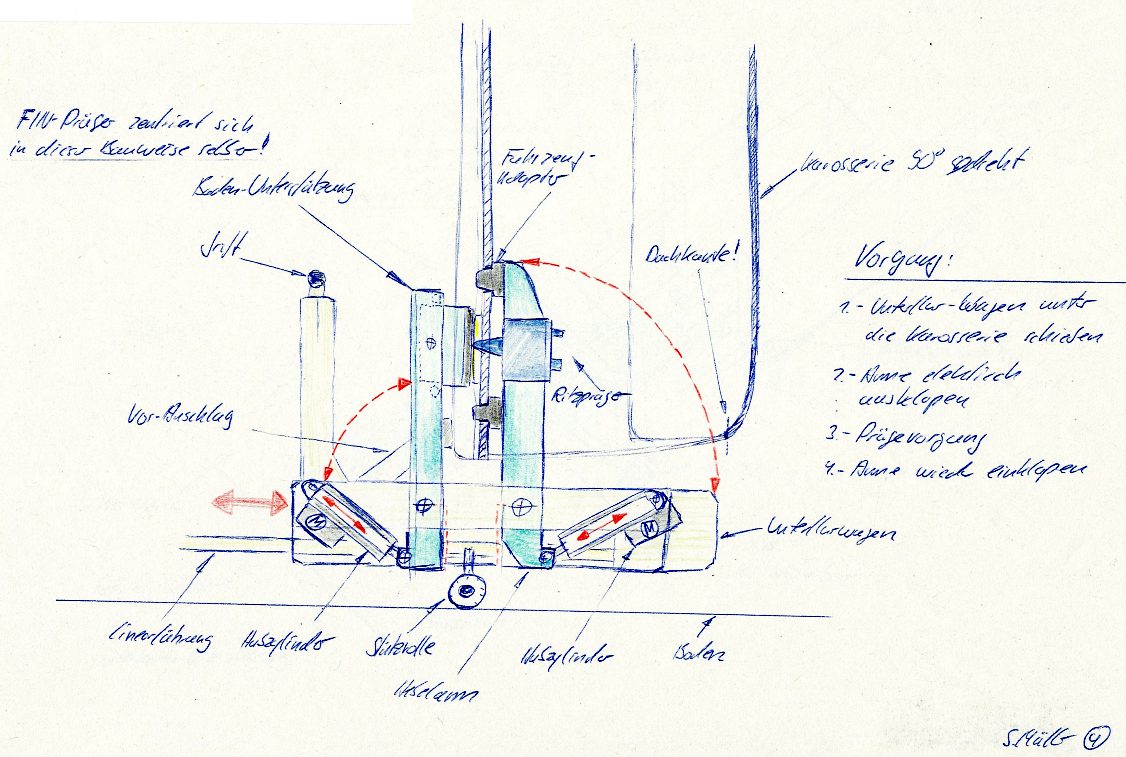 FIN-Präger zentriert sich
in dieser Bauweise selber!
Boden-Unterstützung
Fahrzeug-
Adapter
Karosserie 90° gedreht
Griff
Dachkante!
Vorgang:
1.- Unterflur-Wagen unter
die Karosserie schieben
2.- Arme elektrisch
ausklapen
3.- Prägevorgang
4.- Arme wieder einklapen
Ritzpräger
Vor-Anschlag
M
M
Unterflurwagen
Linearführung
Hubzylinder
Stützrolle
Hubzylinder
Boden
Hebelarm
4